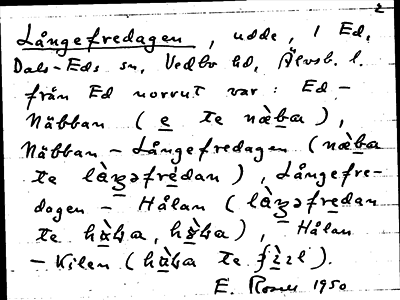 2
Långefredagen, udde, i Ed,
Dals-Eds sn, Vedbo hd, Älvsb. l.
från Ed norrut var: Ed –
Näbban (e te næ̀ba),
Näbban – Långefredagen (næ̀ba
te là̀ŋəfrèdan), Långefre-
dagen – Hålan (làŋəfrèdan
te hàɽa, hàɽa), Hålan
– Kilen (hàɽa te
E. Rosell 1950